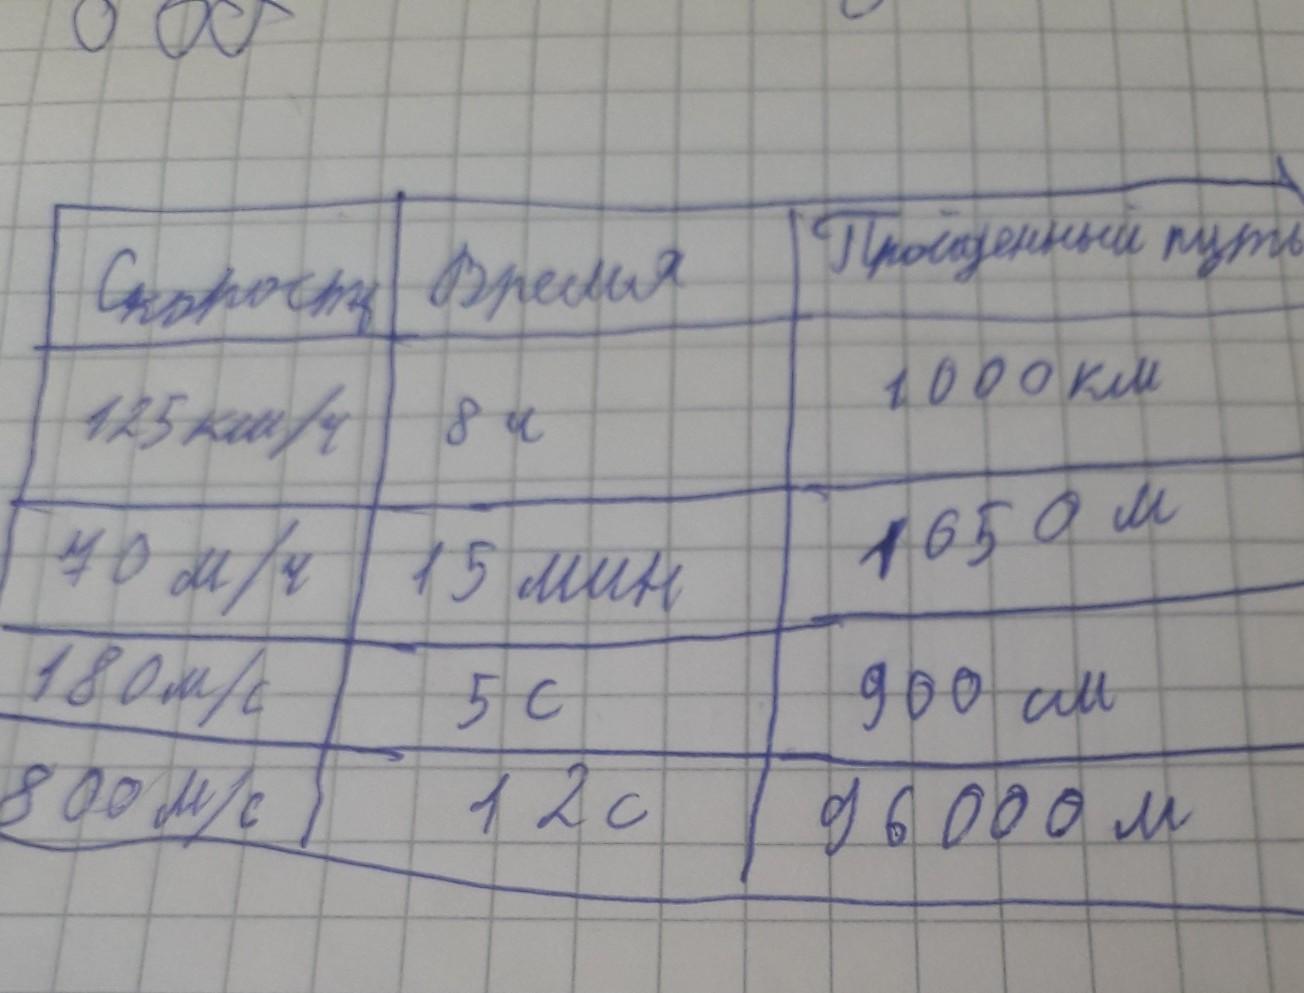 Скорость Время Пройденный путь
125км/ч 8 ч 1000км
70 м/ч 15 мин 1050 м
180м/с 5 с 900 см
800м/с 12с 96000 м